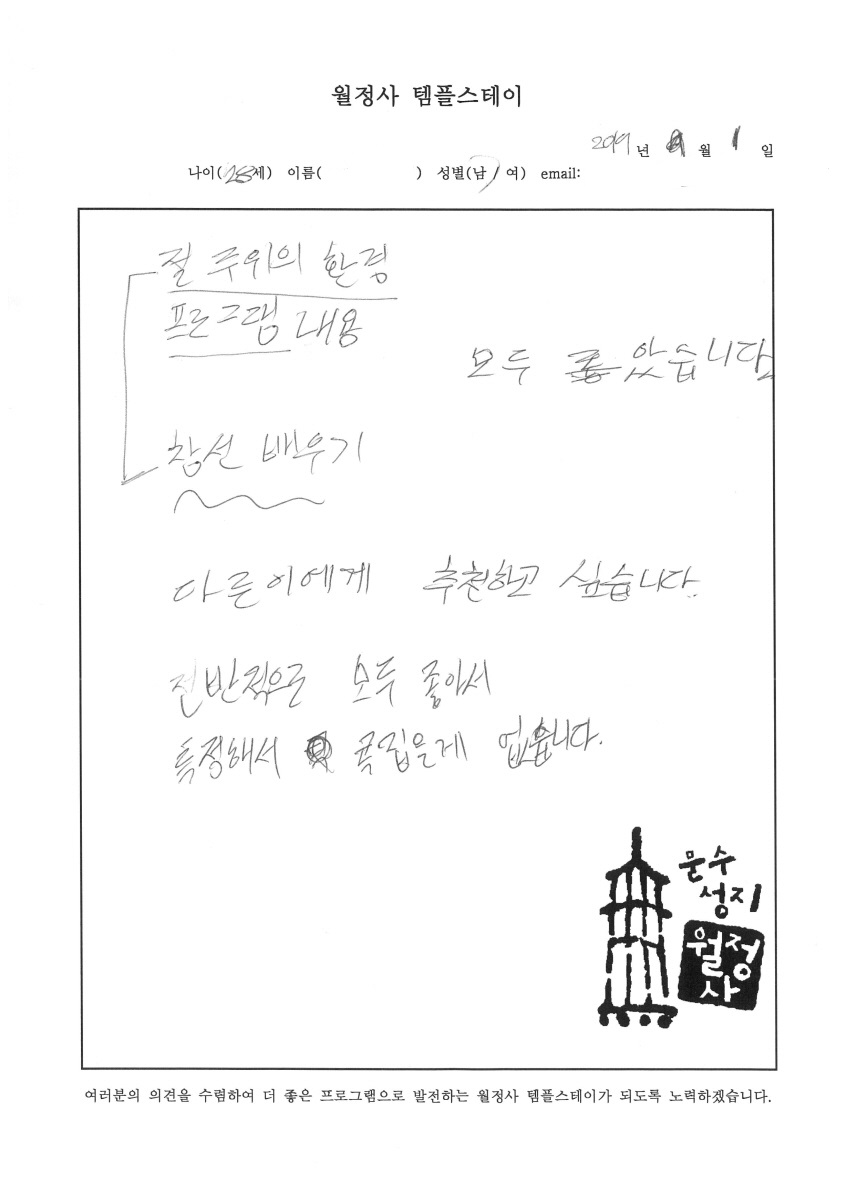 월정사 템플스테이
2019 년 9 월 1 일
나이(28세) 이름( ) 성별(남 / 여) email:
절 주위의 환경
프로그램 내용
모두 좋았습니다
참선 배우기
다른이에게 추천하고 싶습니다.
전반적으로 모두 좋아서
특정해서 꼭집을게 없습니다.
문수
성지
월정
사
여러분의 의견을 수렴하여 더 좋은 프로그램으로 발전하는 월정사 템플스테이가 되도록 노력하겠습니다.